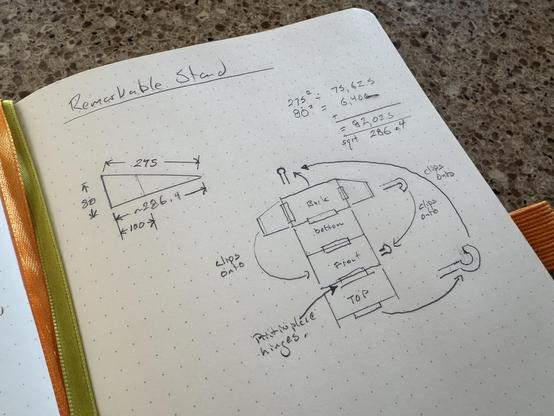 Remarkable Stand
275² = 75,625
80² = 6,400
= 82,025
sqrt 286.4
275
80
~286.4
100
Back
bottom
Front
TOP
clips onto
clips onto
clips onto
Print in place
hinges.